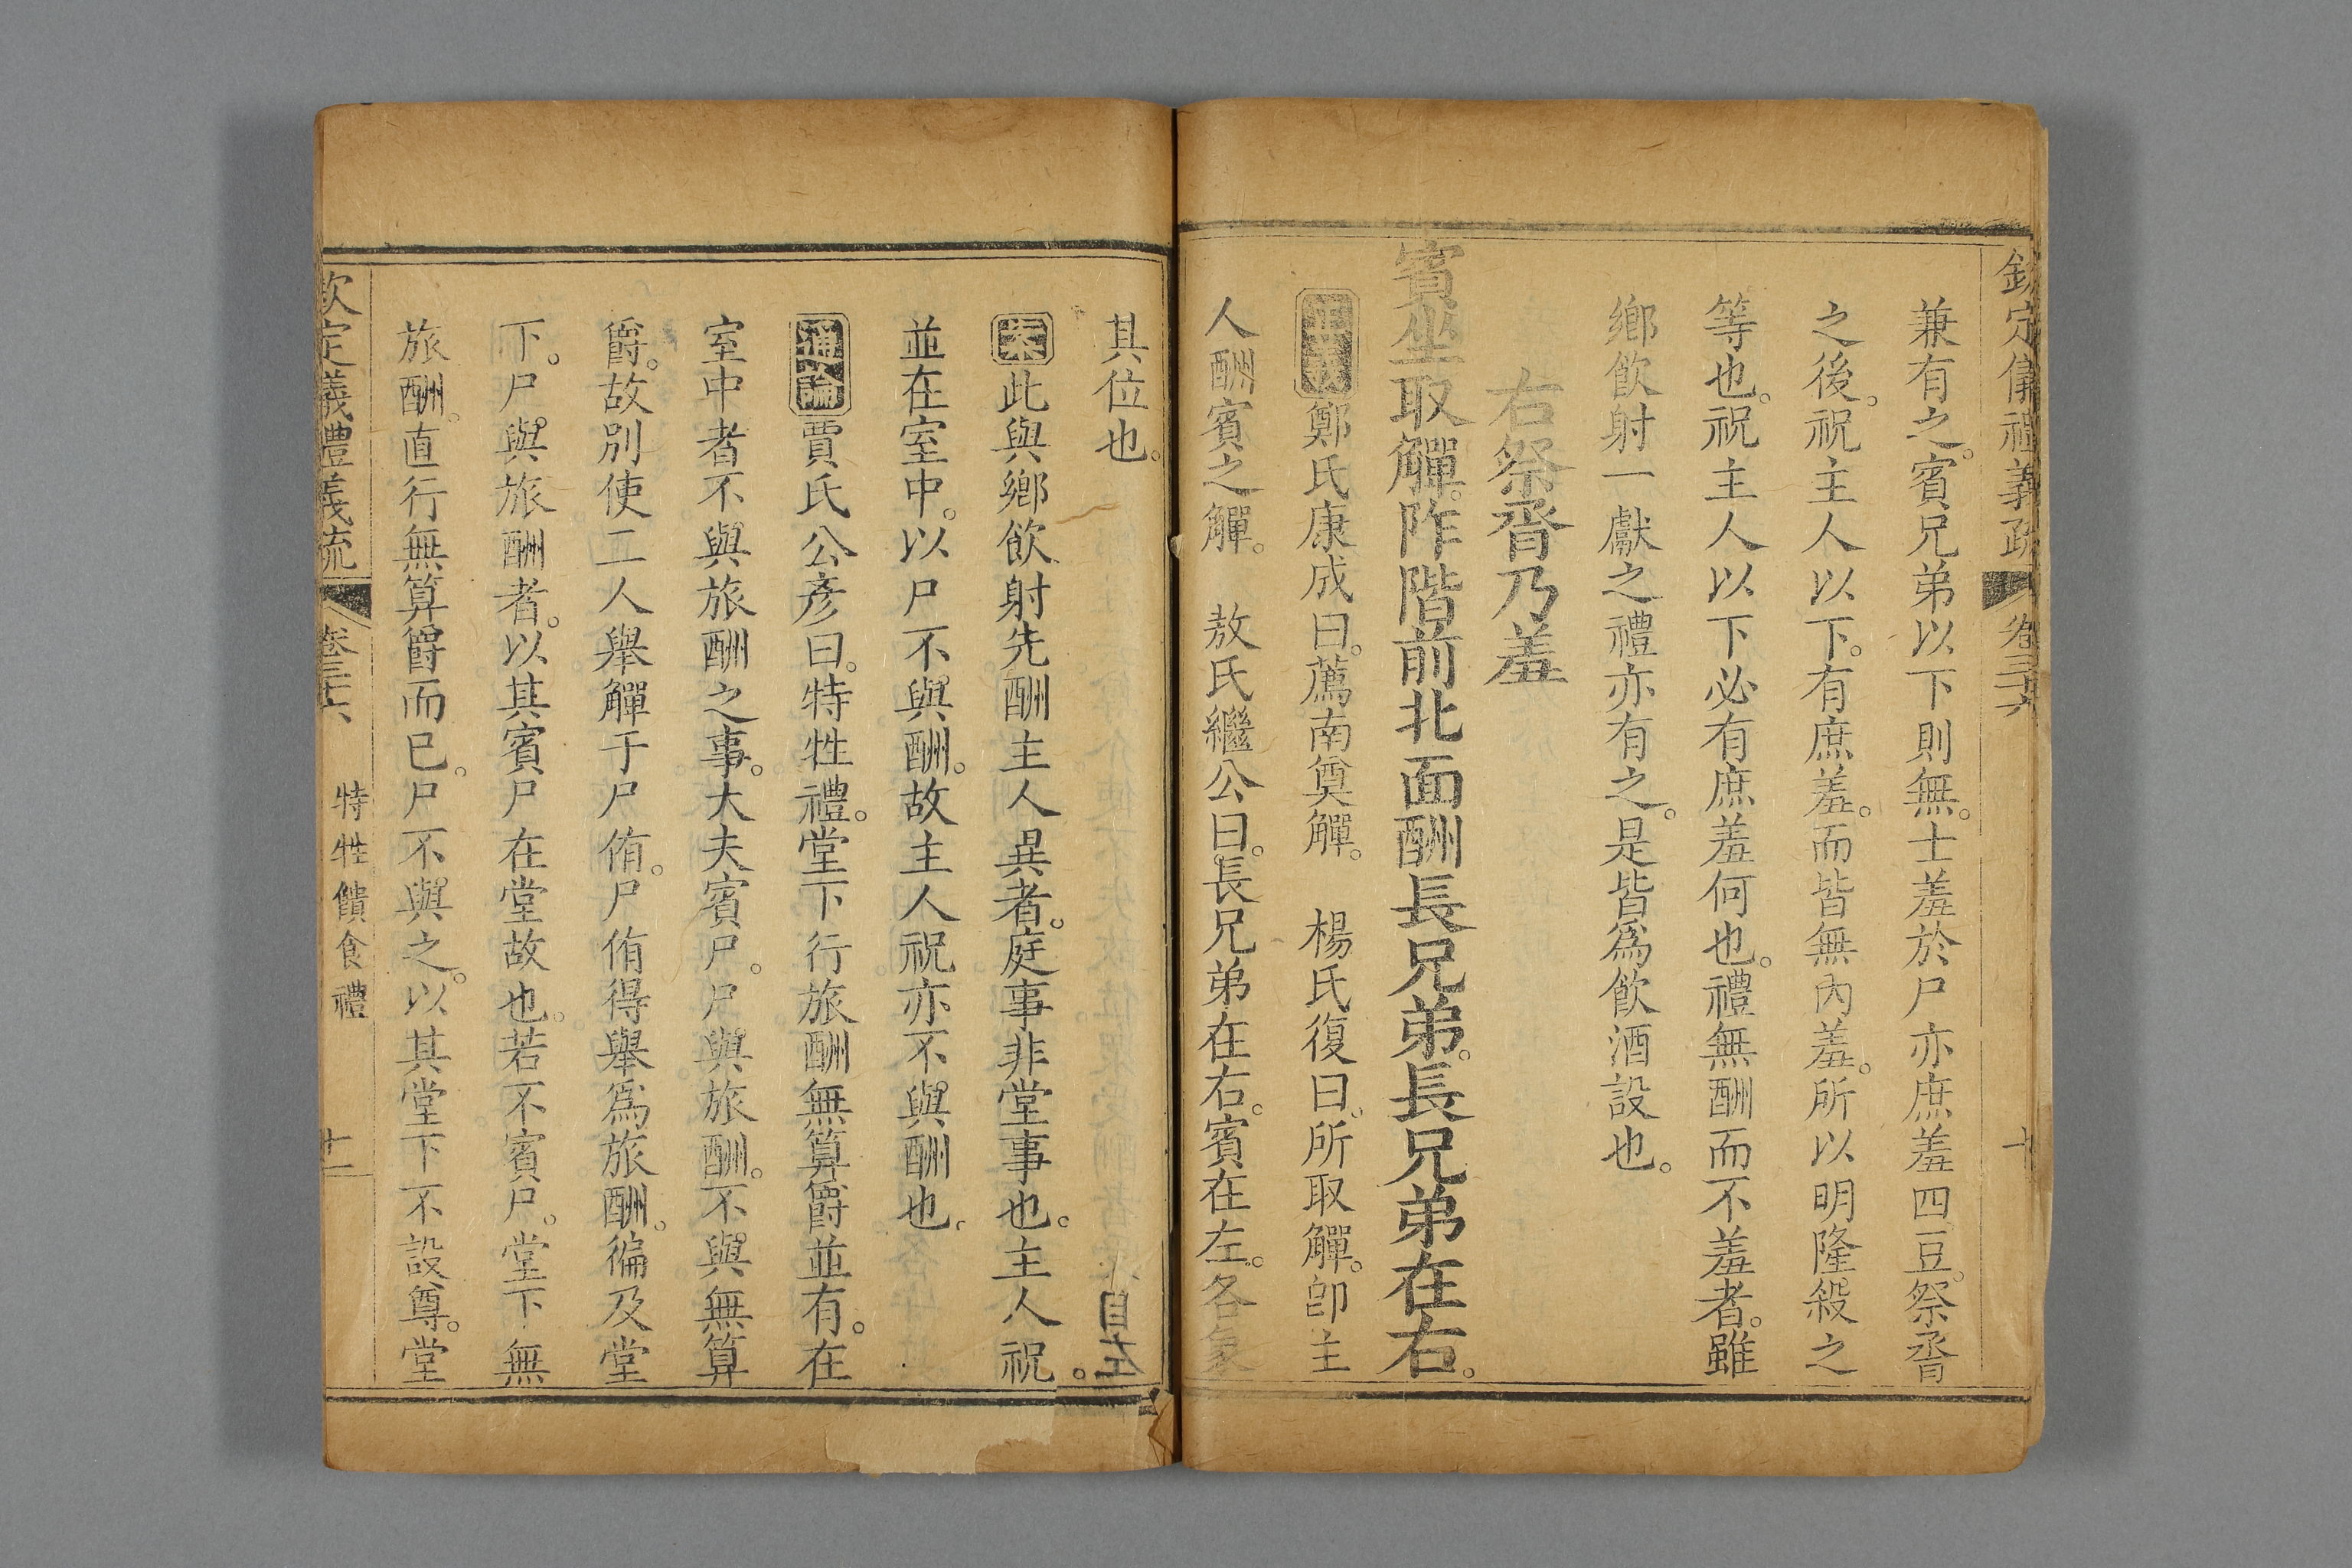 欽定儀禮義疏 卷三十六 十
兼有之。賓兄弟以下則無。士羞於尸亦庶羞四豆。祭脀
之後。祝主人以下。有庶羞。而皆無內羞。所以明隆殺之
等也。祝主人以下必有庶羞何也。禮無酬而不羞者。雖
鄉飮射一獻之禮亦有之。是皆爲飮酒設也。
右祭脀乃羞
賓坐取觶。阼階前北面酬長兄弟。長兄弟在右。
正義 鄭氏康成曰。薦南奠觶。 楊氏復曰。所取觶。卽主
人酬賓之觶。 敖氏繼公曰。長兄弟在右。賓在左。各象
其位也。
案 此與鄉飮射先酬主人異者。庭事非堂事也。主人祝
並在室中。以尸不與酬。故主人祝亦不與酬也。
通論 賈氏公彥曰。特牲禮。堂下行旅酬無算爵並有。在
室中者不與旅酬之事。大夫賓尸。尸與旅酬。不與無算
爵。故別使二人舉觶于尸侑。尸侑得舉爲旅酬。徧及堂
下。尸與旅酬者。以其賓尸在堂故也。若不賓尸。堂下無
旅酬。直行無算爵而已。尸不與之。以其堂下不設尊。堂
欽定儀禮義疏 卷三十六 特牲饋食禮 十一